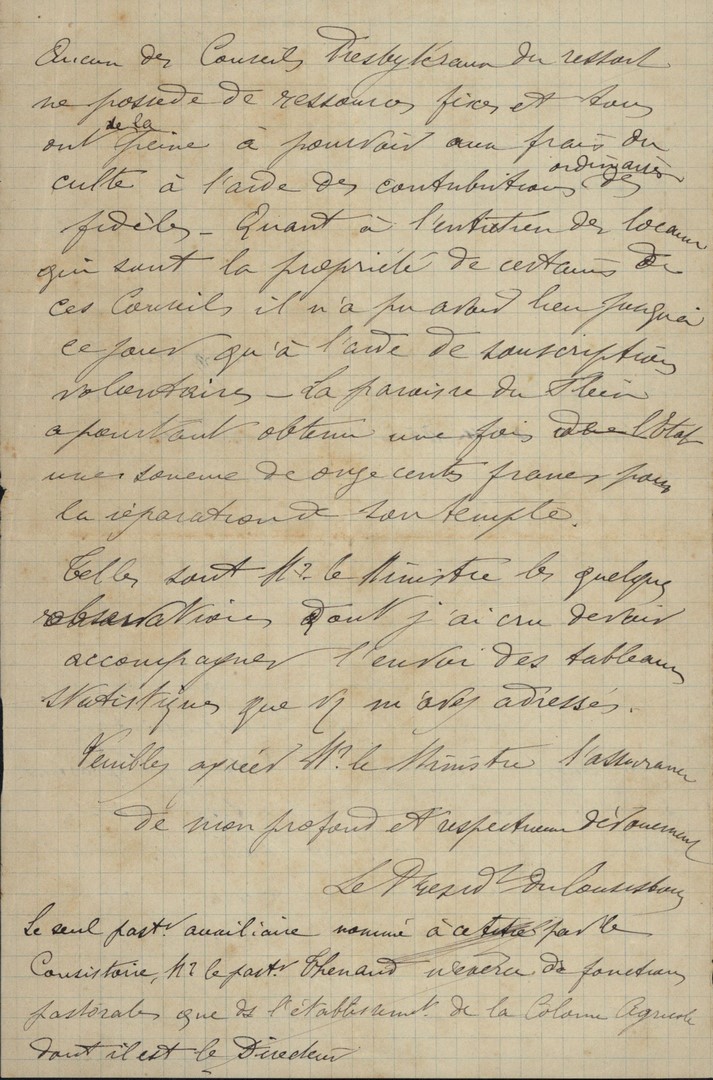 Aucun des Conseils Presbytéraux du ressort
ne possede de ressources fixes et tous
ont de la peine à pourvoir aux frais du
culte à l'aide des contributions ordinaires des
fidèles – Quant à l'entretien des locaux
qui sont la propriété de certains de
ces Conseils il n'a pu avoir lieu jusqu'à
ce jour qu'à l'aide de souscriptions
volontaires – La paroisse du
a pourtant obtenu une fois de l'Etat
une somme de onze cents francs pour
la réparation de son temple.
Telles sont Mr. le Ministre les quelques
observations dont j'ai cru devoir
accompagner l'envoi des tableaux
statistiques que v m'avez adressés.
Veuillez agréer Mr. le Ministre l'assurance
de mon profond et respectueux dévouement
Le Présidt du Consistoire
Le seul pastr. auxiliaire nommé à ce titre par le
Consistoire, Mr le pastr Thenaud n'exerce de fonctions
pastorales que ds l'établissemt. de la Colonie Agricole
dont il est le Directeur